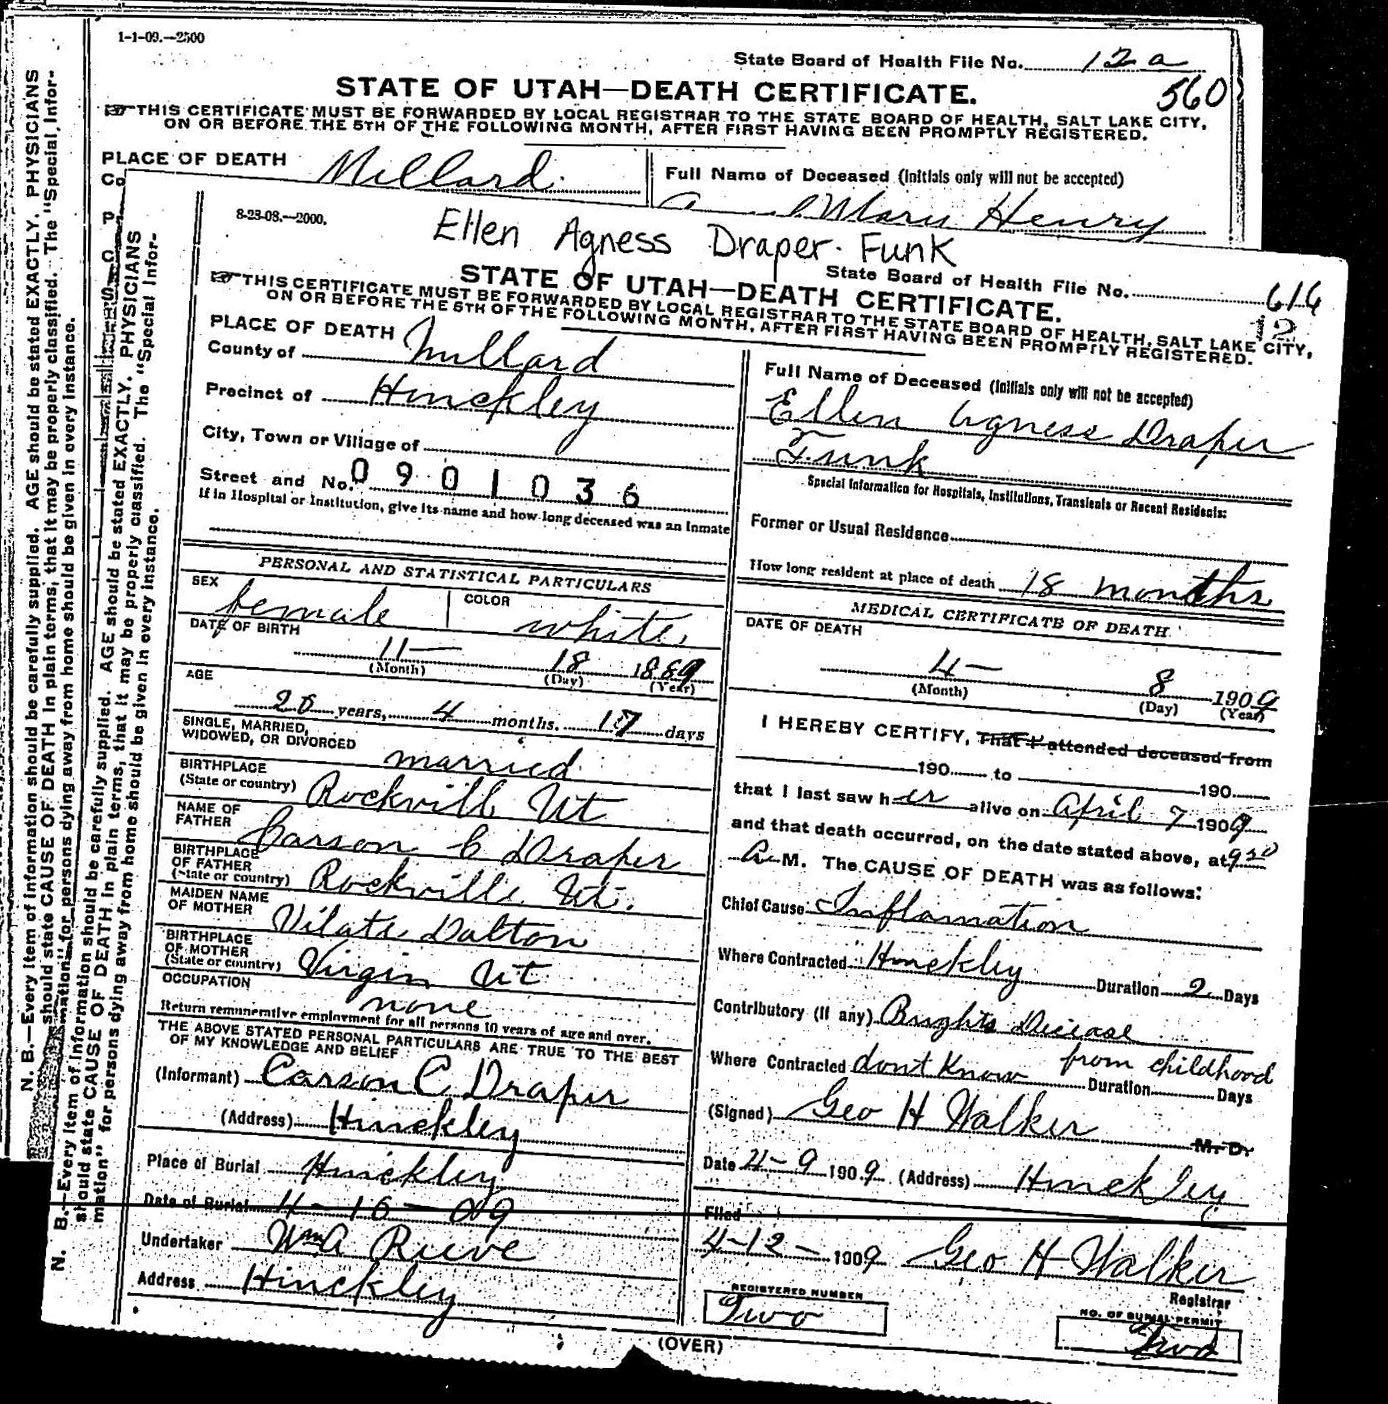 1-1-09.—2500
State Board of Health File No. 12a
560
STATE OF UTAH—DEATH CERTIFICATE.
THIS CERTIFICATE MUST BE FORWARDED BY LOCAL REGISTRAR TO THE STATE BOARD OF HEALTH, SALT LAKE CITY,
ON OR BEFORE THE 5TH OF THE FOLLOWING MONTH, AFTER FIRST HAVING BEEN PROMPTLY REGISTERED.
PLACE OF DEATH Millard
Co
Full Name of Deceased (Initials only will not be accepted)
Mary Henry
P
C
N. B.—Every item of information should be carefully supplied. AGE should be stated EXACTLY. PHYSICIANS
should state CAUSE OF DEATH in plain terms, that it may be properly classified. The "Special Infor-
mation" for persons dying away from home should be given in every instance.
8-23-08.—2000.
Ellen Agness Draper Funk
State Board of Health File No. 616
12
STATE OF UTAH—DEATH CERTIFICATE.
THIS CERTIFICATE MUST BE FORWARDED BY LOCAL REGISTRAR TO THE STATE BOARD OF HEALTH, SALT LAKE CITY,
ON OR BEFORE THE 5TH OF THE FOLLOWING MONTH, AFTER FIRST HAVING BEEN PROMPTLY REGISTERED.
PLACE OF DEATH
County of Millard
Precinct of Hinckley
City, Town or Village of
Street and No. 0901036
If in Hospital or Institution, give its name and how long deceased was an Inmate
PERSONAL AND STATISTICAL PARTICULARS
SEX female COLOR white
DATE OF BIRTH
11— 18 1889
(Month) (Day) (Year)
AGE
20 years, 4 months. 17 days
SINGLE, MARRIED,
WIDOWED, OR DIVORCED married
BIRTHPLACE
(State or country) Rockvill Ut
NAME OF
FATHER Carson C Draper
BIRTHPLACE
OF FATHER
(State or country) Rockville Ut.
MAIDEN NAME
OF MOTHER Vilate Dalton
BIRTHPLACE
OF MOTHER
(State or country) Virgin Ut
OCCUPATION none
Return remunerative employment for all persons 10 years of age and over.
THE ABOVE STATED PERSONAL PARTICULARS ARE TRUE TO THE BEST
OF MY KNOWLEDGE AND BELIEF
(Informant) Carson C Draper
(Address) Hinckley
Place of Burial Hinckley
Date of Burial 4-10-09
Undertaker Wm A Reeve
Address Hinckley
Full Name of Deceased (Initials only will not be accepted)
Ellen Agness Draper
Funk
Special Information for Hospitals, Institutions, Transients or Recent Residents:
Former or Usual Residence
How long resident at place of death 18 months
MEDICAL CERTIFICATE OF DEATH
DATE OF DEATH
4— 8 1909
(Month) (Day) (Year)
I HEREBY CERTIFY, That I attended deceased from
190 to 190
that I last saw her alive on April 7 1909
and that death occurred, on the date stated above, at 9 30
A M. The CAUSE OF DEATH was as follows:
Chief Cause Inflamation
Where Contracted Hinckley Duration 2 Days
Contributory (if any) Brights Dicease
from childhood
Where Contracted dont Know Duration Days
(Signed) Geo H Walker M. D.
Date 4-9 1909 (Address) Hinckley
Filed
4-12— 1909 Geo H Walker
Registrar
REGISTERED NUMBER
Two
NO. OF BURIAL PERMIT
Two
(OVER)
N. B.—Every item of information should be carefully supplied. AGE should be stated EXACTLY. PHYSICIANS
should state CAUSE OF DEATH in plain terms, that it may be properly classified. The "Special Infor-
mation" for persons dying away from home should be given in every instance.